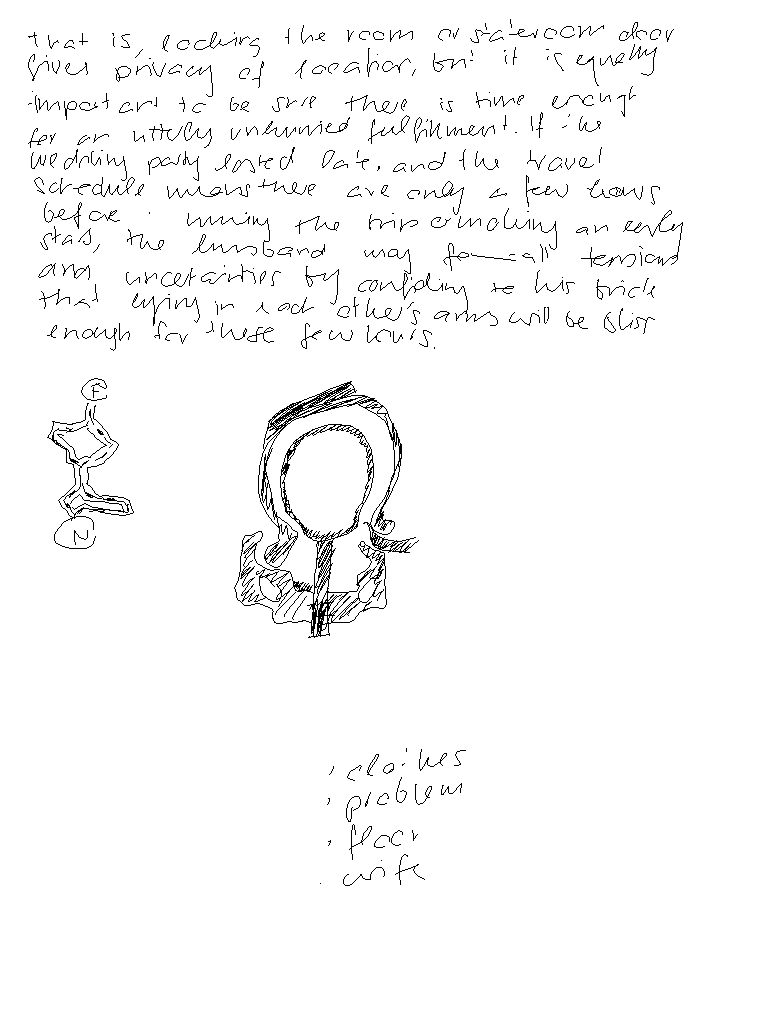 that is, locking the room or stateroom door
gives privacy of location, but it is equally
important to be sure there is time enough
for an utterly unhurried fulfillment. If the
wedding party lasted late, and the travel
schedule means there are only a few hours
before the trip making an early
start, the husband may all tensions
and uncertainties by confiding to his bride
that lying in each other's arms will be bliss
enough for these few hours.
F
N
clothes
problem
floor
wife